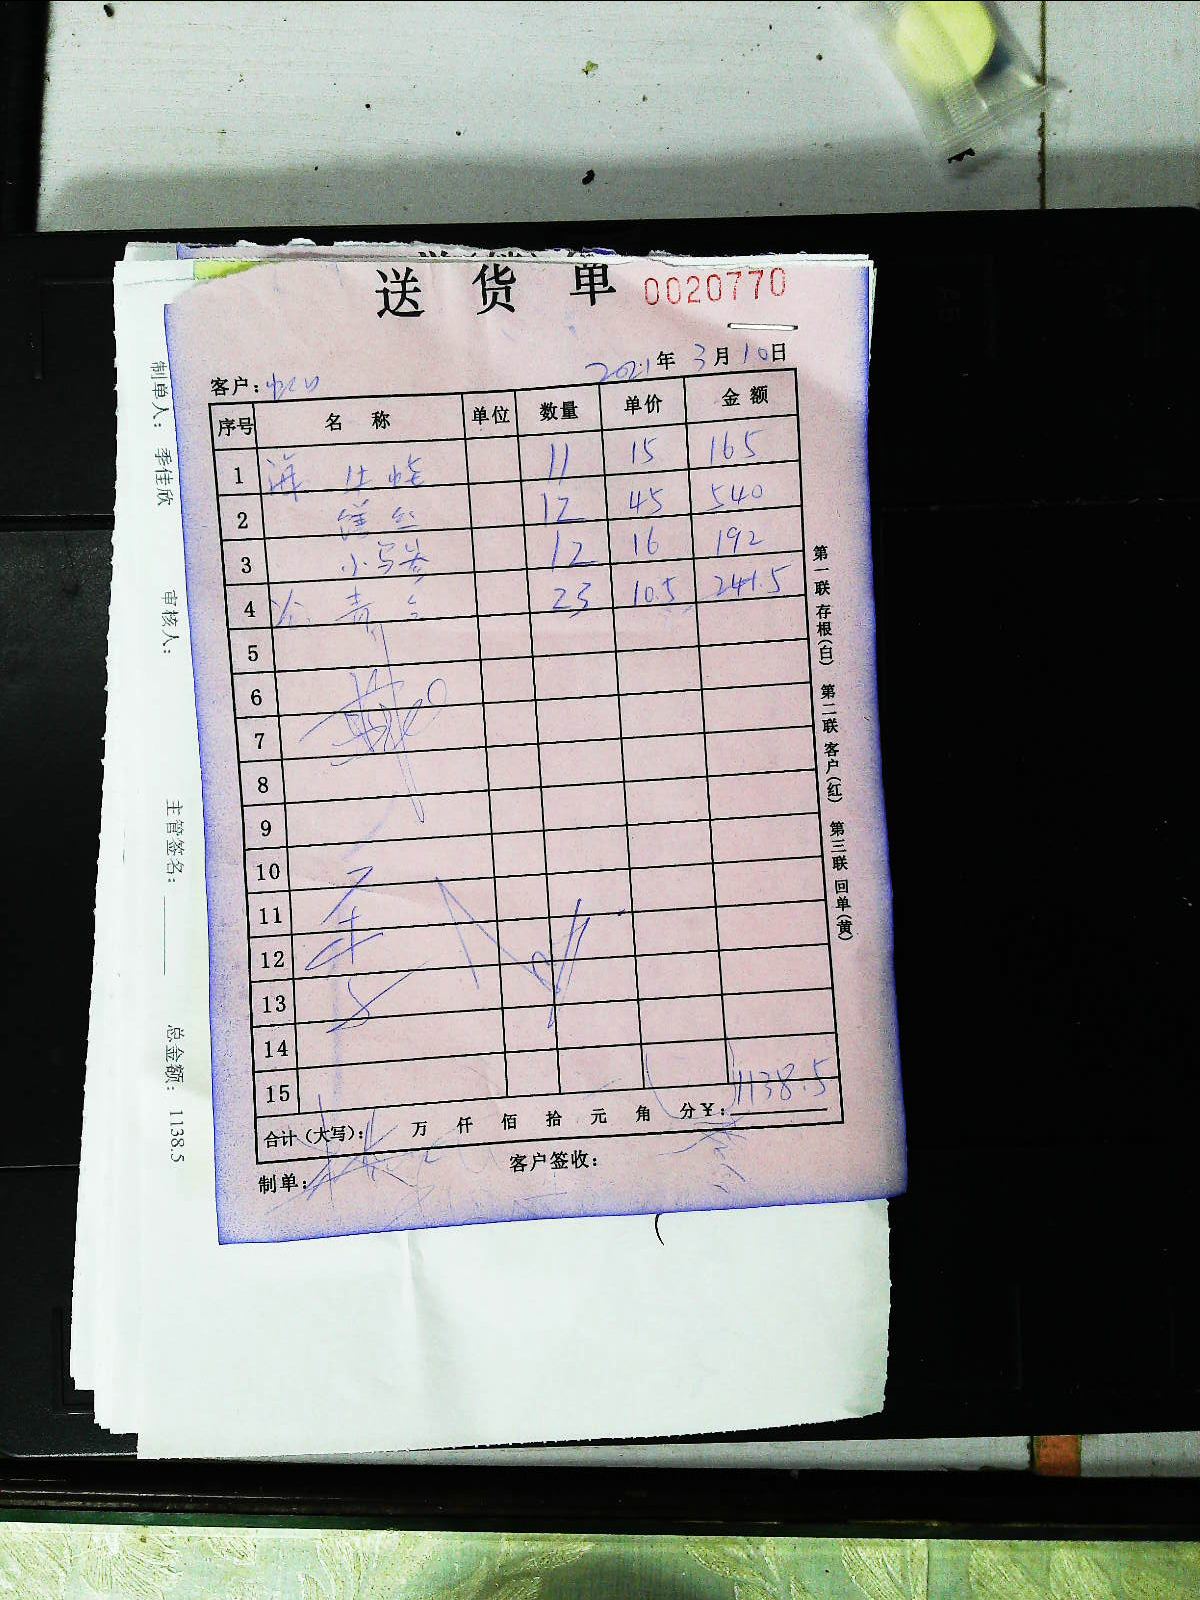 送 货 单 0020770
2021年 3月 10日
客户:
序号 名 称 单位 数量 单价 金额
1 海 11 15 165
2 12 45 540
3 小 12 16 192
4 23 10.5 241.5
5
6
7
8
9
10
11
12
13
14
15
合计(大写): 万 仟 佰 拾 元 角 分¥: 1138.5
制单: 客户签收:
第一联 存根(白) 第二联 客户(红) 第三联 回单(黄)
制单人: 季佳欣 审核人: 主管签名: 总金额: 1138.5